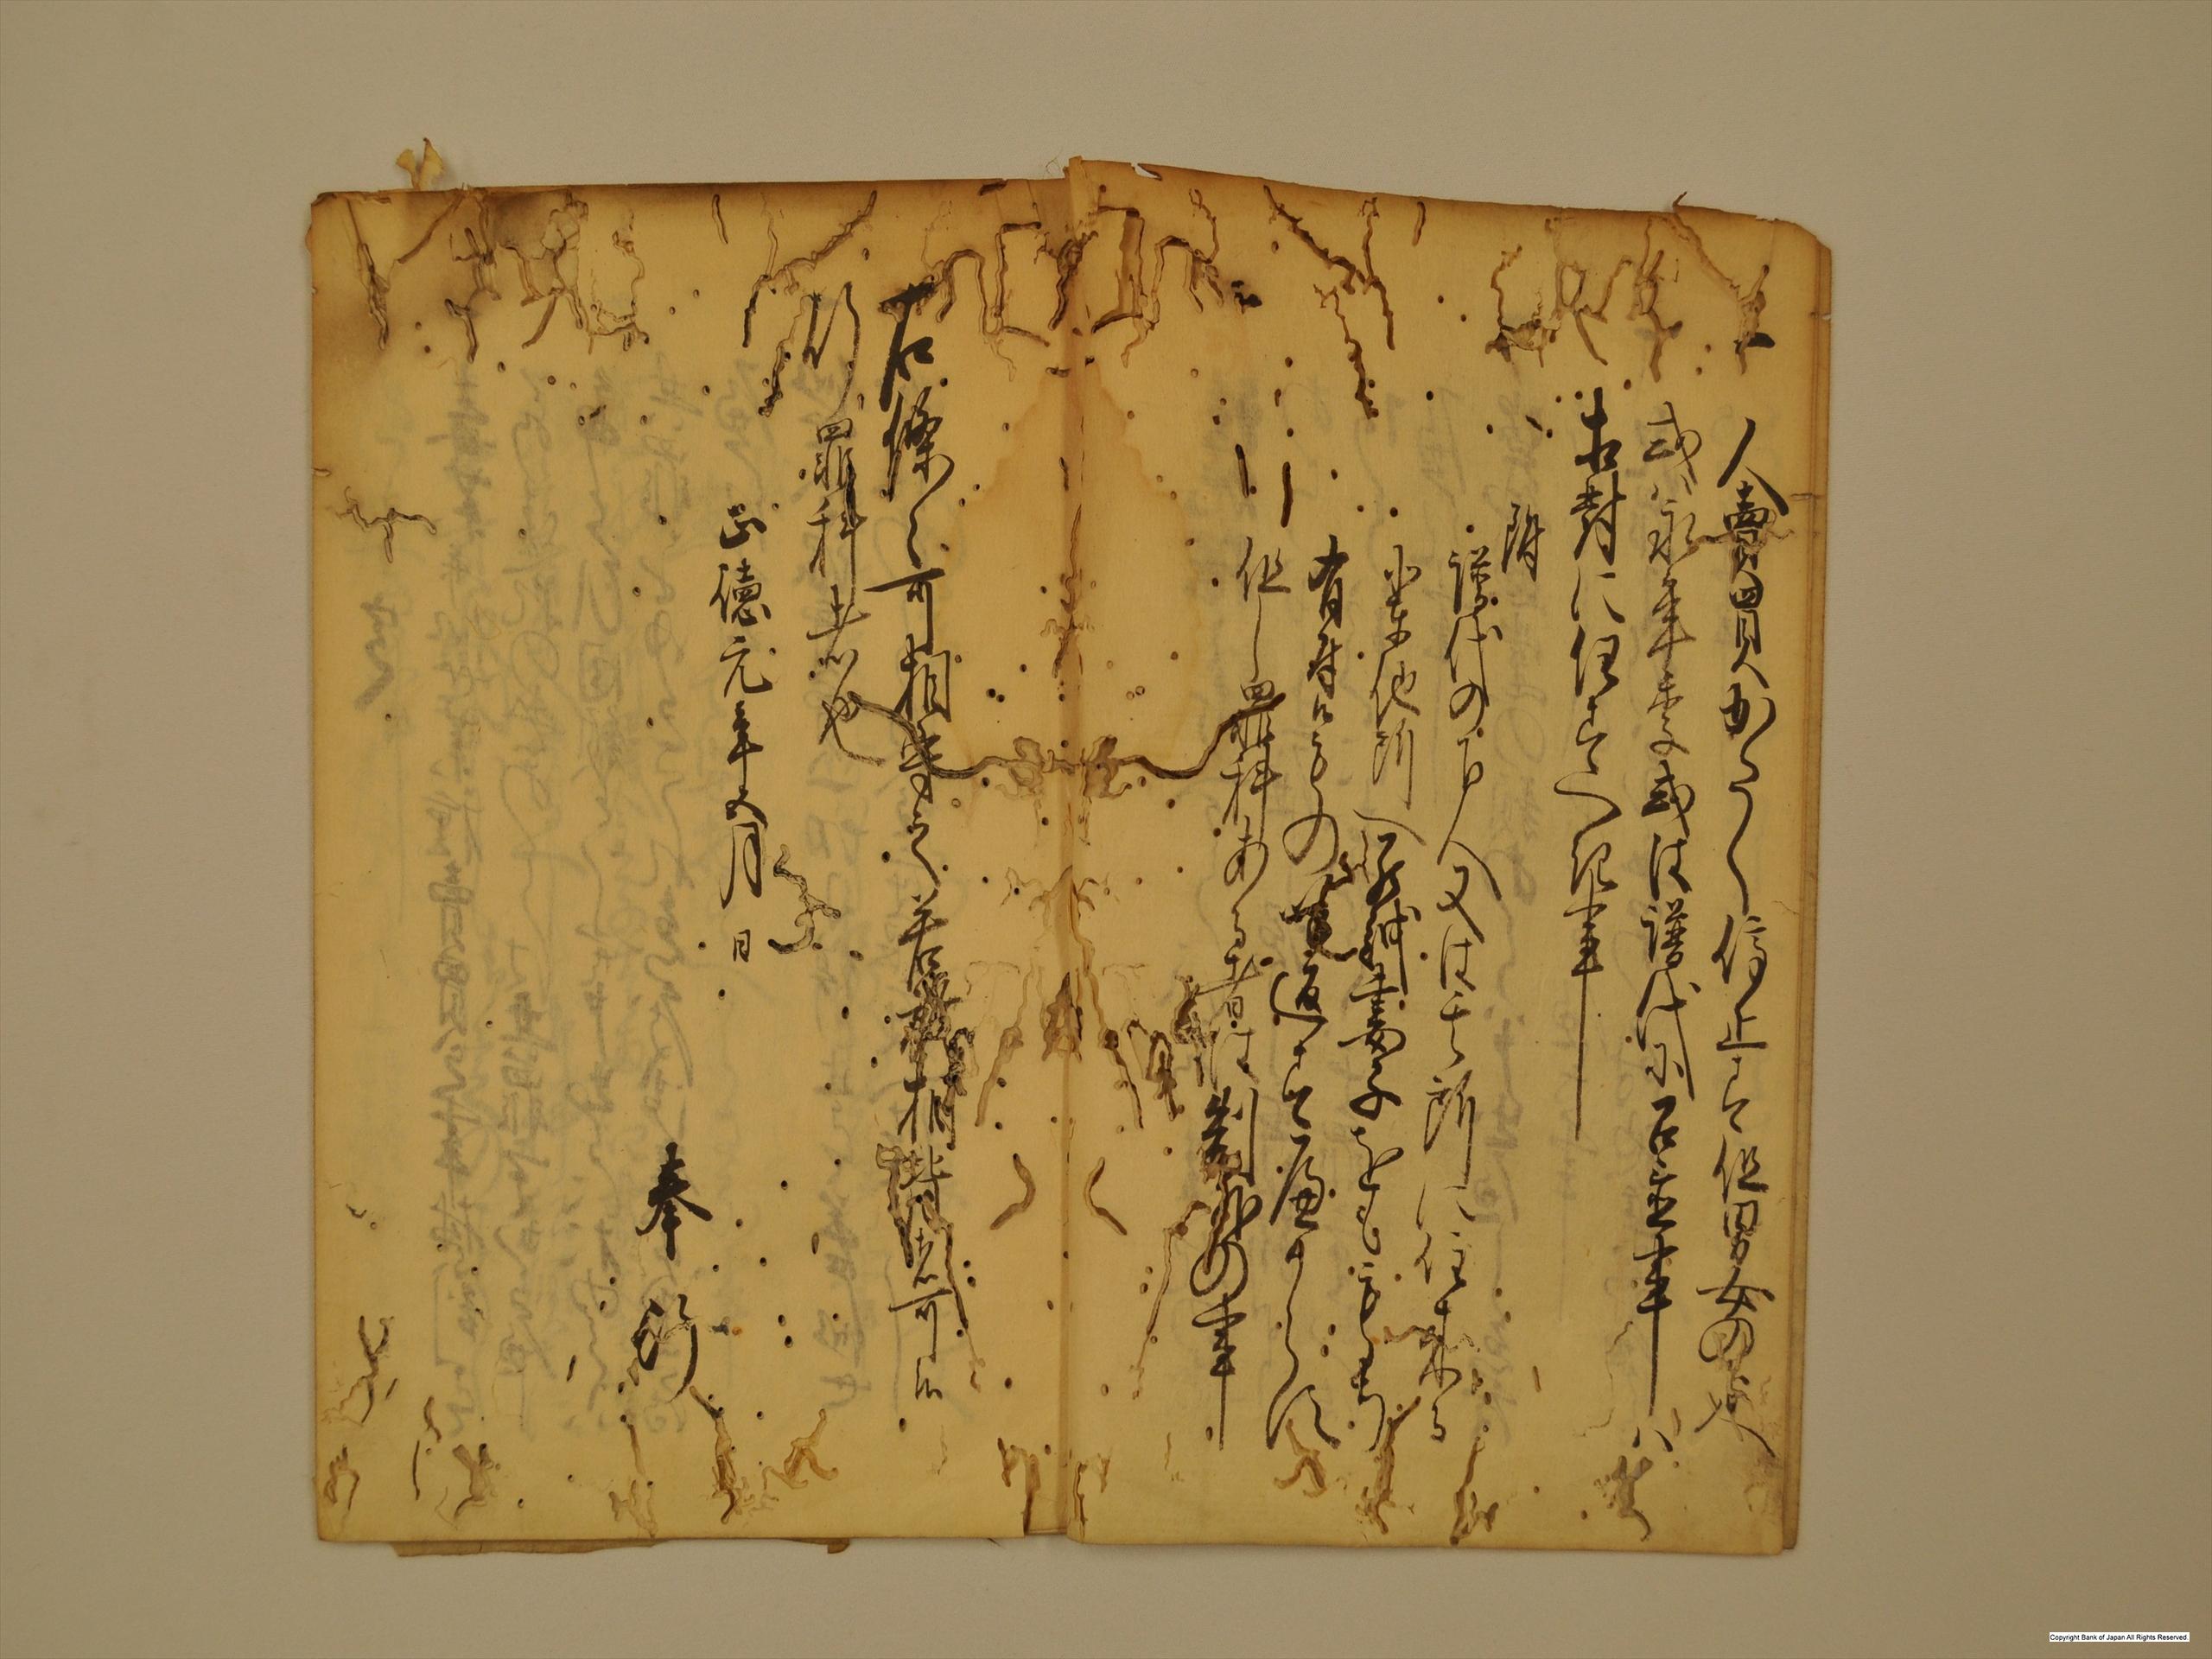 人賣買かたく停止す但男女の下人
或ハ永年季或は譜代ニ召置事ハ
相對に任すへき事
附
譜代の下人又は其所に住来る
輩他所へ罷越妻子をも
有付候もの呼返すへからす
但し罪科ある者は制外の事
右條々可相守之若於相背者可被
行罪科者也
正徳元年五月日
奉行
Copyright Bank of Japan All Rights Reserved.